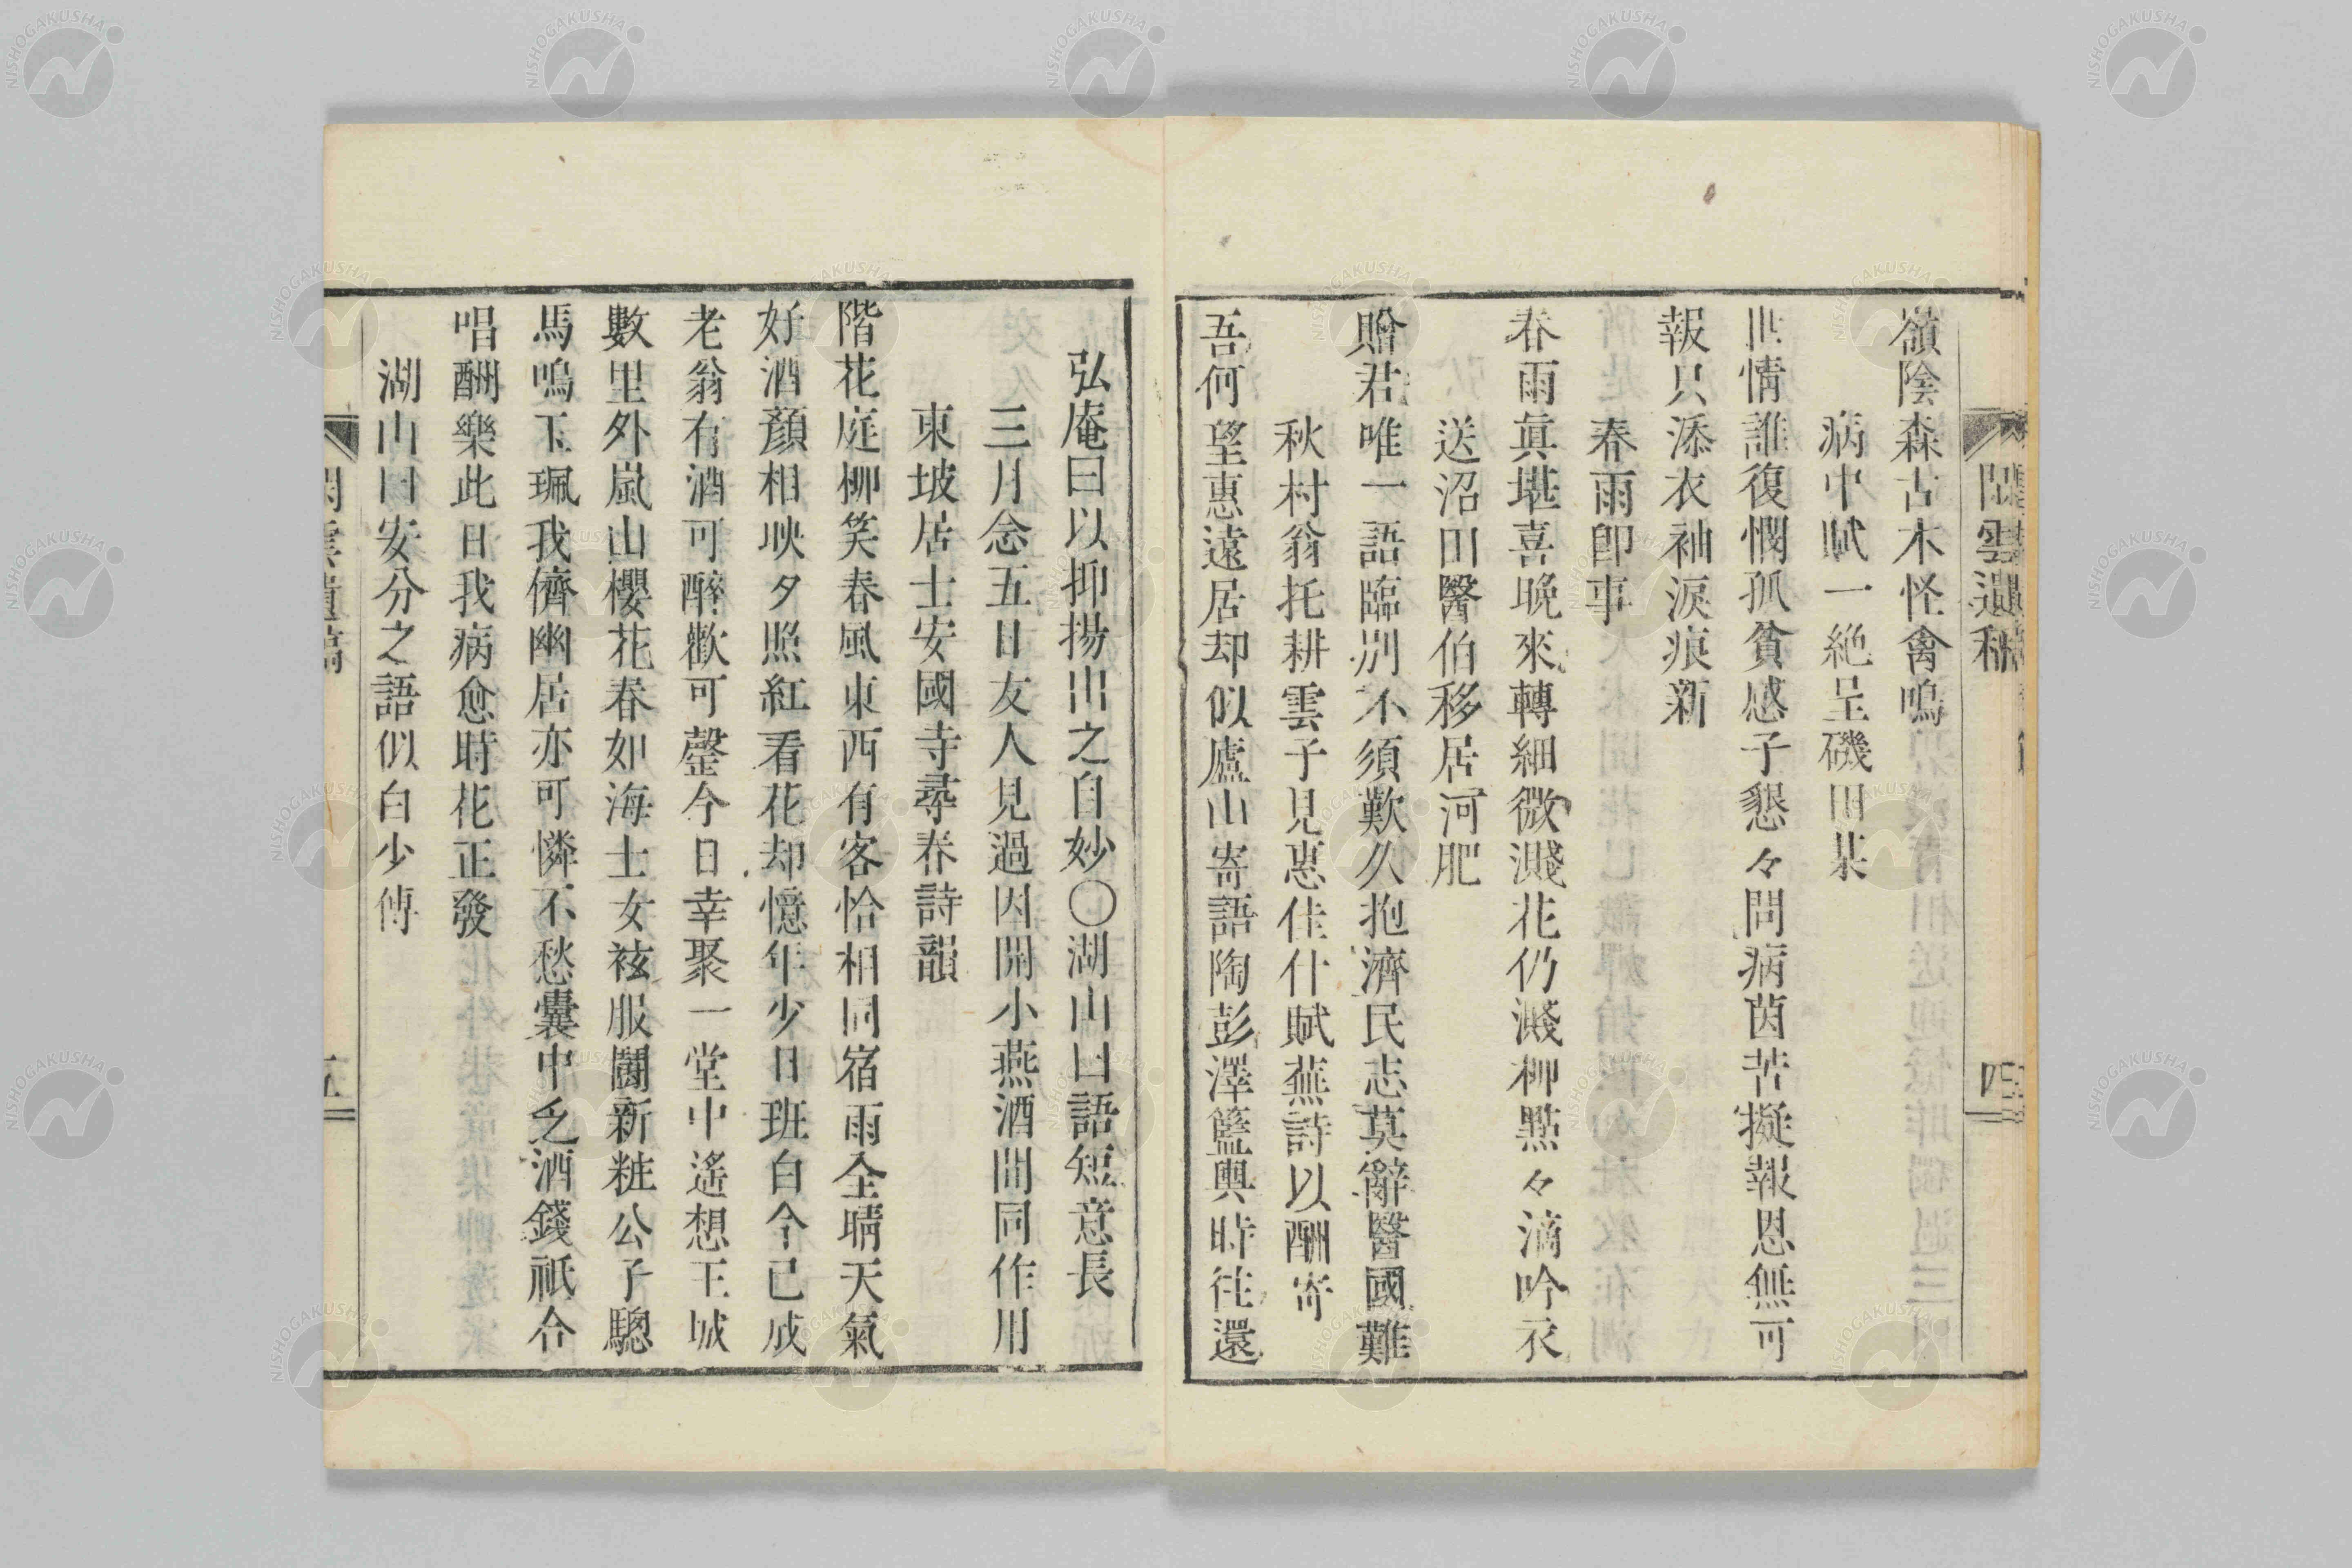 嶺陰森古木怪禽鳴
病中賦一絶呈磯田某
世情誰復憫孤貧感子懇々問病茵苦擬報恩無可
報只添衣袖淚痕新
春雨卽事
春雨眞堪喜晚來轉細微濺花仍濺柳點々滴吟衣
送沼田醫伯移居河肥
贈君唯一語臨別不須歎久抱濟民志莫辭醫國難
秋村翁托耕雲子見惠佳什賦蕪詩以酬寄
吾何望惠遠居却似廬山寄語陶彭澤籃輿時往還
弘庵曰以抑揚出之自妙〇湖山曰語短意長
三月念五日友人見過因開小燕酒間同作用
東坡居士安國寺尋春詩韻
階花庭柳笑春風東西有客恰相同宿雨全晴天氣
好酒顏相映夕照紅看花却憶年少日班白今已成
老翁有酒可醉歡可罄今日幸聚一堂中遙想王城
數里外嵐山櫻花春如海士女袨服鬪新粧公子驄
馬鳴玉珮我儕幽居亦可憐不愁囊中乏酒錢祇合
唱酬樂此日我病愈時花正發
湖山曰安分之語似白少傅